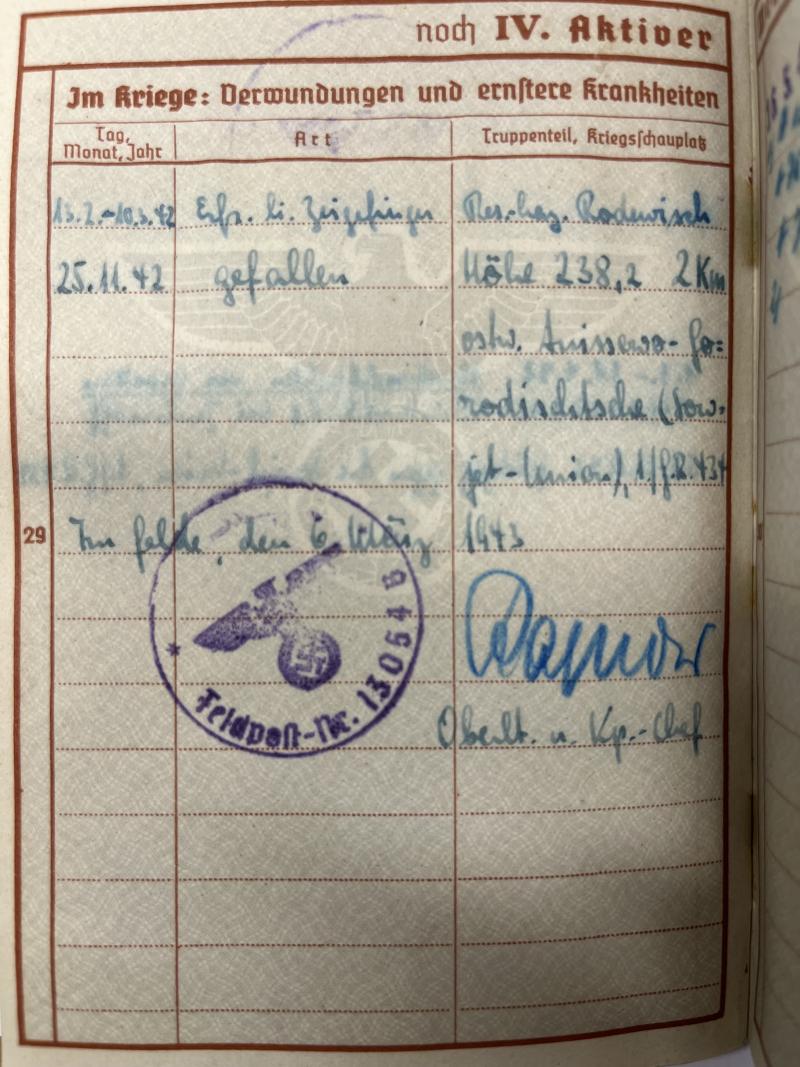 noch IV. Aktiver
Im Kriege: Verwundungen und ernstere Krankheiten
Tag, Monat, Jahr
Art
Truppenteil, Kriegsschauplatz
13.2.-10.3.42 Erfr. li. Zeigefinger Res.-Laz. Rodewisch
25.11.42 gefallen Höhe 238,2 2 Km
ostw. Anissowo-Go=
rodischtsche (Sow-
jet-Union), 1./G.R.434
29
Im Felde, den 6. März 1943
Oberlt. u. Kp.-Chef
Feldpost-Nr. 13054 B